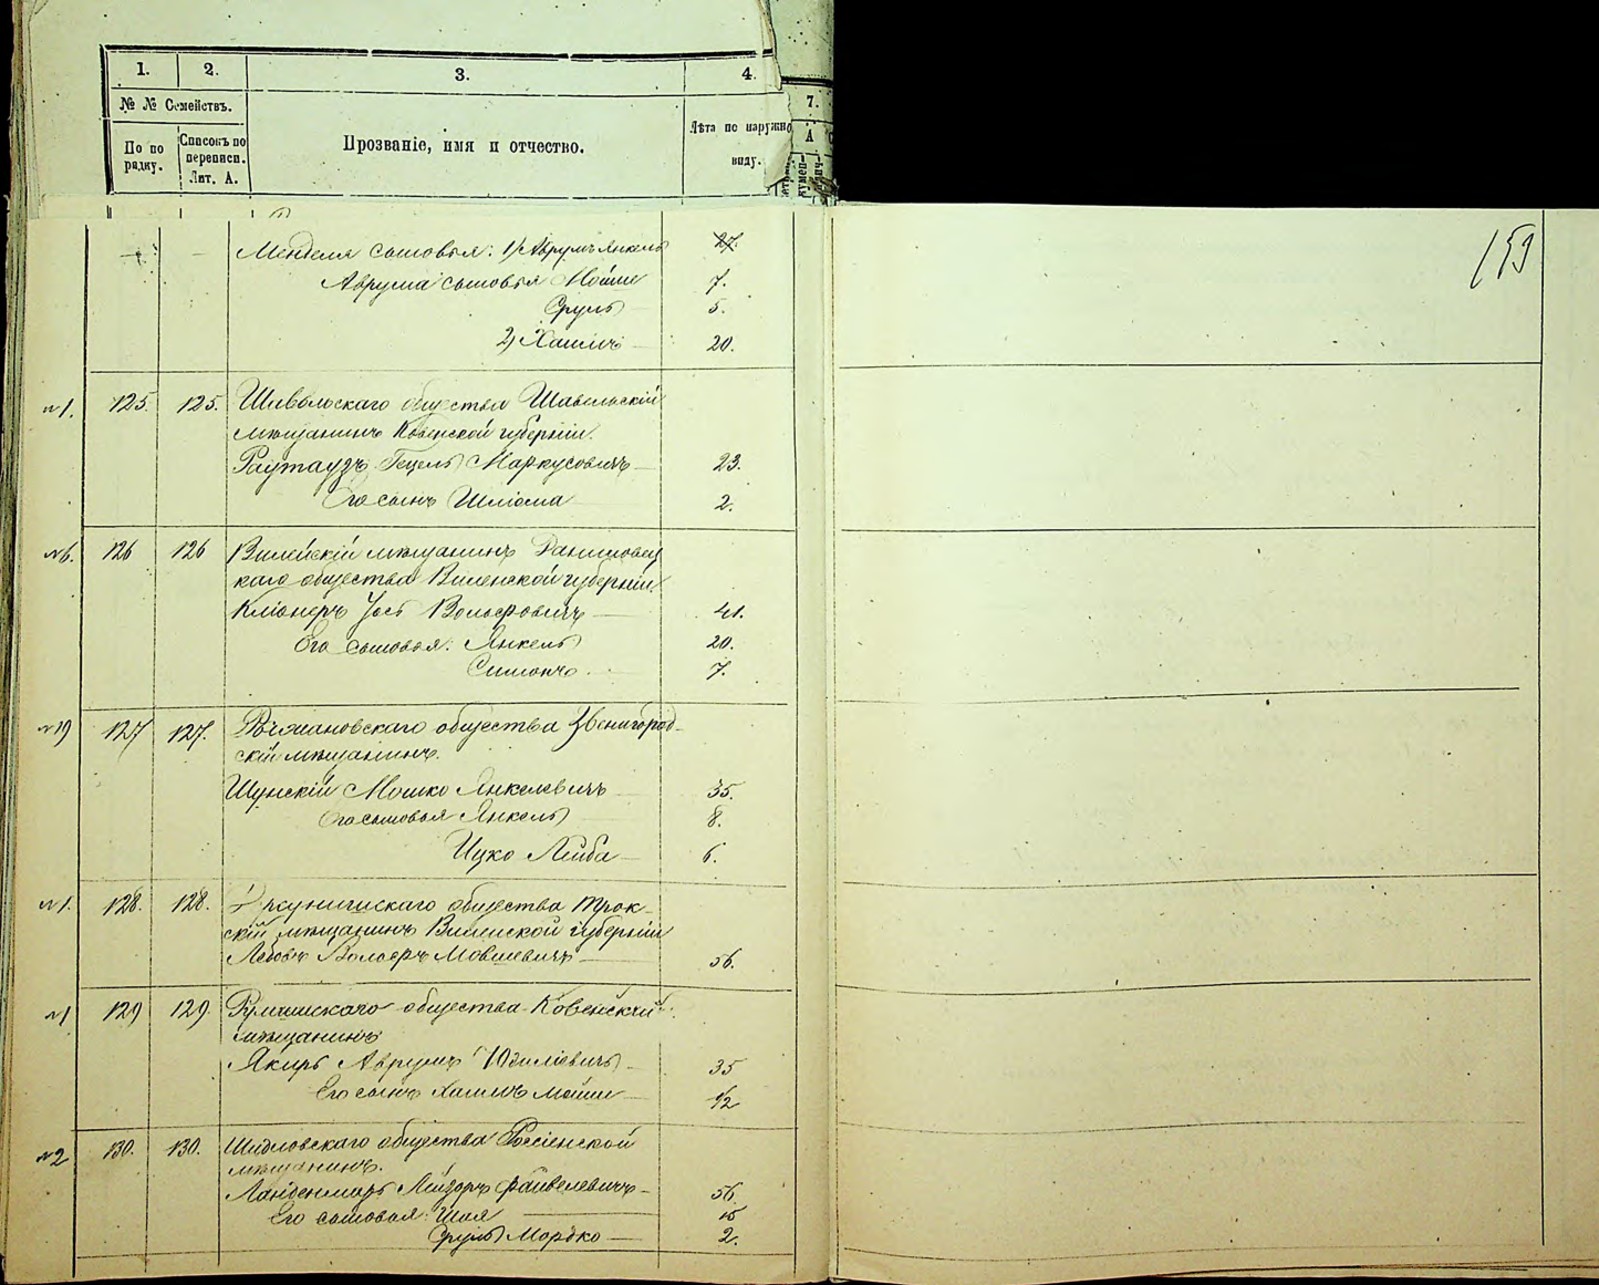 1. 2. 3. 4. 7.
№ № Семействъ.
По по рядку.
Списокъ по переписи. Лит. А.
Прозваніе, имя и отчество.
Лѣта по наружно виду.
А
159
Менделя сыновья: 1) Аврумъ Янкель 27.
Аврума сыновья Мойше 7.
Сруль 5.
2) Хаимъ 20.
№1. 125. 125. Шавельскаго общества Шавельскій
мѣщанинъ Ковенской губерніи.
Раутаузъ Гецель Маркусовичъ 23.
Его сынъ Шліома 2.
№6. 126 126 Вилейскій мѣщанинъ
каго общества Виленской губерніи.
Кліонеръ Іосъ Вольфовичъ 41.
Его сыновья: Янкель 20.
Симонъ 7.
№19 127 127. общества Звенигород-
скій мѣщанинъ.
Шунскій Мошко Янкелевичъ 35.
Его сыновья Янкель 8.
Ицко Лейба 6.
№1. 128. 128. общества Трок-
скій мѣщанинъ Виленской губерніи
Вольфъ Мовшевичъ 56.
№1 129 129. общества Ковенскій
мѣщанинъ
Якиръ Аврумъ 35
Его сынъ Хаимъ Мойше 12
№2 130. 130. Шидловскаго общества Россіенской
мѣщанинъ.
Лейзоръ Файвелевичъ 56.
Его сыновья: Шая 15
Сруль Мордко 2.